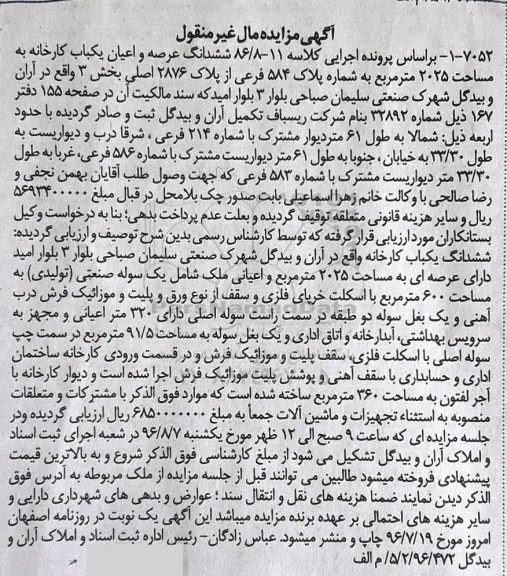 آگهی مزایده مال غیر منقول
۷۰۵۲-۱- براساس پرونده اجرایی کلاسه ۱۱-۸۶/۸ ششدانگ عرصه و اعیان یکباب کارخانه به
مساحت ۲۰۲۵ مترمربع به شماره پلاک ۵۸۴ فرعی از پلاک ۲۸۷۶ اصلی بخش ۳ واقع در آران
و بیدگل شهرک صنعتی سلیمان صباحی بلوار ۳ بلوار امید که سند مالکیت آن در صفحه ۱۵۵ دفتر
۱۶۷ ذیل شماره ۳۲۸۹۲ بنام شرکت ریسباف تکمیل آران و بیدگل ثبت و صادر گردیده با حدود
اربعه ذیل: شمالا به طول ۶۱ متر دیوار مشترک با شماره ۲۱۴ فرعی ، شرقا درب و دیواریست به
طول ۳۳/۳۰ به خیابان ، جنوبا به طول ۶۱ متر دیواریست مشترک با شماره ۵۸۶ فرعی، غربا به طول
۳۳/۳۰ متر دیواریست مشترک با شماره ۵۸۳ فرعی که جهت وصول طلب آقایان بهمن نجفی و
رضا صالحی با وکالت خانم زهرا اسماعیلی بابت صدور چک بلامحل در قبال مبلغ ۵۶۹۳۴۰۰۰۰۰
ریال و سایر هزینه قانونی متعلقه توقیف گردیده و بعلت عدم پرداخت بدهی؛ بنا به درخواست وکیل
بستانکاران مورد ارزیابی قرار گرفته که توسط کارشناس رسمی بدین شرح توصیف و ارزیابی گردیده:
ششدانگ یکباب کارخانه واقع در آران و بیدگل شهرک صنعتی سلیمان صباحی بلوار ۳ بلوار امید
دارای عرصه ای به مساحت ۲۰۲۵ مترمربع و اعیانی ملک شامل یک سوله صنعتی (تولیدی) به
مساحت ۶۰۰ مترمربع با اسکلت خرپای فلزی و سقف از نوع ورق و پلیت و موزائیک فرش درب
آهنی و یک بغل سوله دو طبقه در سمت راست سوله اصلی دارای ۳۲۰ متر اعیانی و مجهز به
سرویس بهداشتی، آبدارخانه و اتاق اداری و یک بغل سوله به مساحت ۹۱/۵ مترمربع در سمت چپ
سوله اصلی با اسکلت فلزی، سقف پلیت و موزائیک فرش و در قسمت ورودی کارخانه ساختمان
اداری و حسابداری با سقف آهنی و پوشش پلیت موزائیک فرش اجرا شده است و دیوار کارخانه با
آجر لفتون به مساحت ۳۶۰ مترمربع ساخته شده است که موارد فوق الذکر با مشترکات و متعلقات
منصوبه به استثناء تجهیزات و ماشین آلات جمعاً به مبلغ ۶۸۵۰۰۰۰۰۰۰ ریال ارزیابی گردیده و در
جلسه مزایده ای که ساعت ۹ صبح الی ۱۲ ظهر مورخ یکشنبه ۹۶/۸/۷ در شعبه اجرای ثبت اسناد
و املاک آران و بیدگل تشکیل می شود از مبلغ کارشناسی فوق الذکر شروع و به بالاترین قیمت
پیشنهادی فروخته میشود طالبین می توانند قبل از جلسه مزایده از ملک مربوطه به آدرس فوق
الذکر دیدن نمایند ضمنا هزینه های نقل و انتقال سند ؛ عوارض و بدهی های شهرداری دارایی و
سایر هزینه های احتمالی بر عهده برنده مزایده میباشد این آگهی یک نوبت در روزنامه اصفهان
امروز مورخ ۹۶/۷/۱۹ چاپ و منتشر میشود. عباس زادگان- رئیس اداره ثبت اسناد و املاک آران و
بیدگل ۵/۲/۹۶/۴۷۲/ م الف